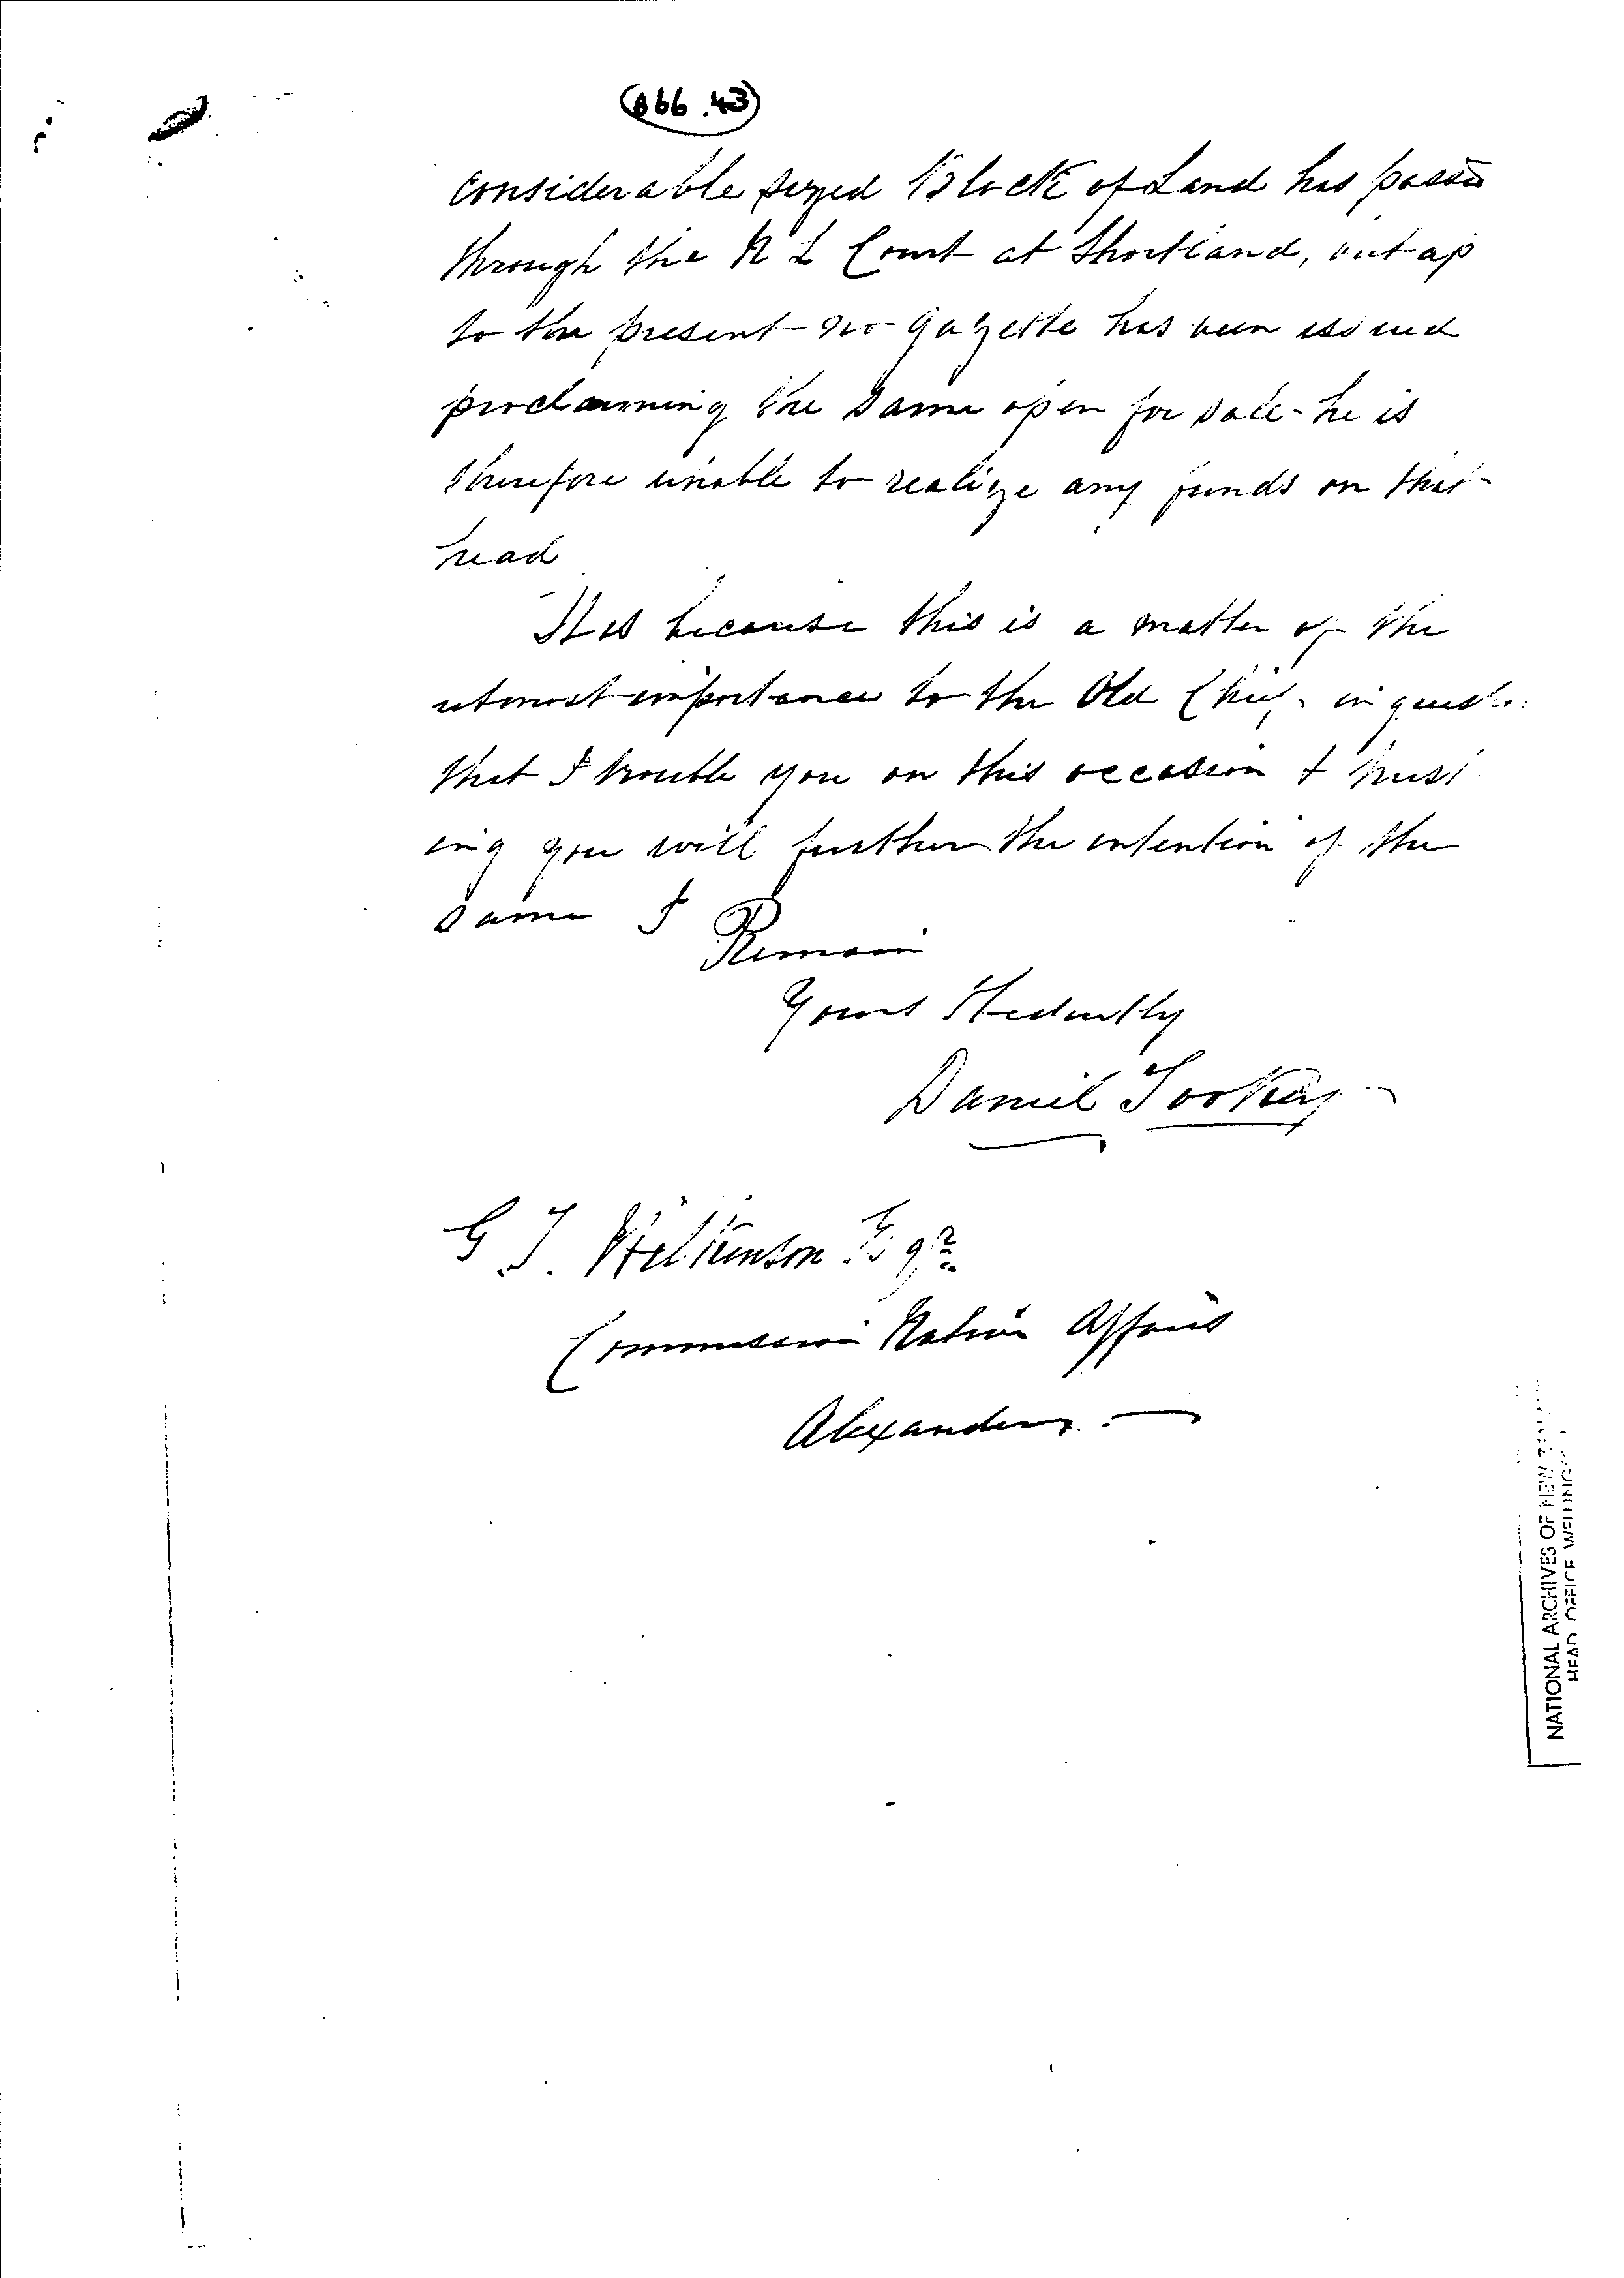 B66.43
considerable sized Block of Land has passed
through the N L Court at Shortland, but up
to the present no Gazette has been issued
proclaiming the same open for sale - he is
therefore unable to realize any funds on that
head
It is because this is a matter of the
utmost importance to the Old Chief in
that I trouble you on this occasion & trust
ing you will further the intention of the
same I
Remain
Yours
Daniel Tookey
G T. Wilkinson Esqr
Commission Native Affairs
Alexandra
NATIONAL ARCHIVES OF NEW
HEAD OFFICE